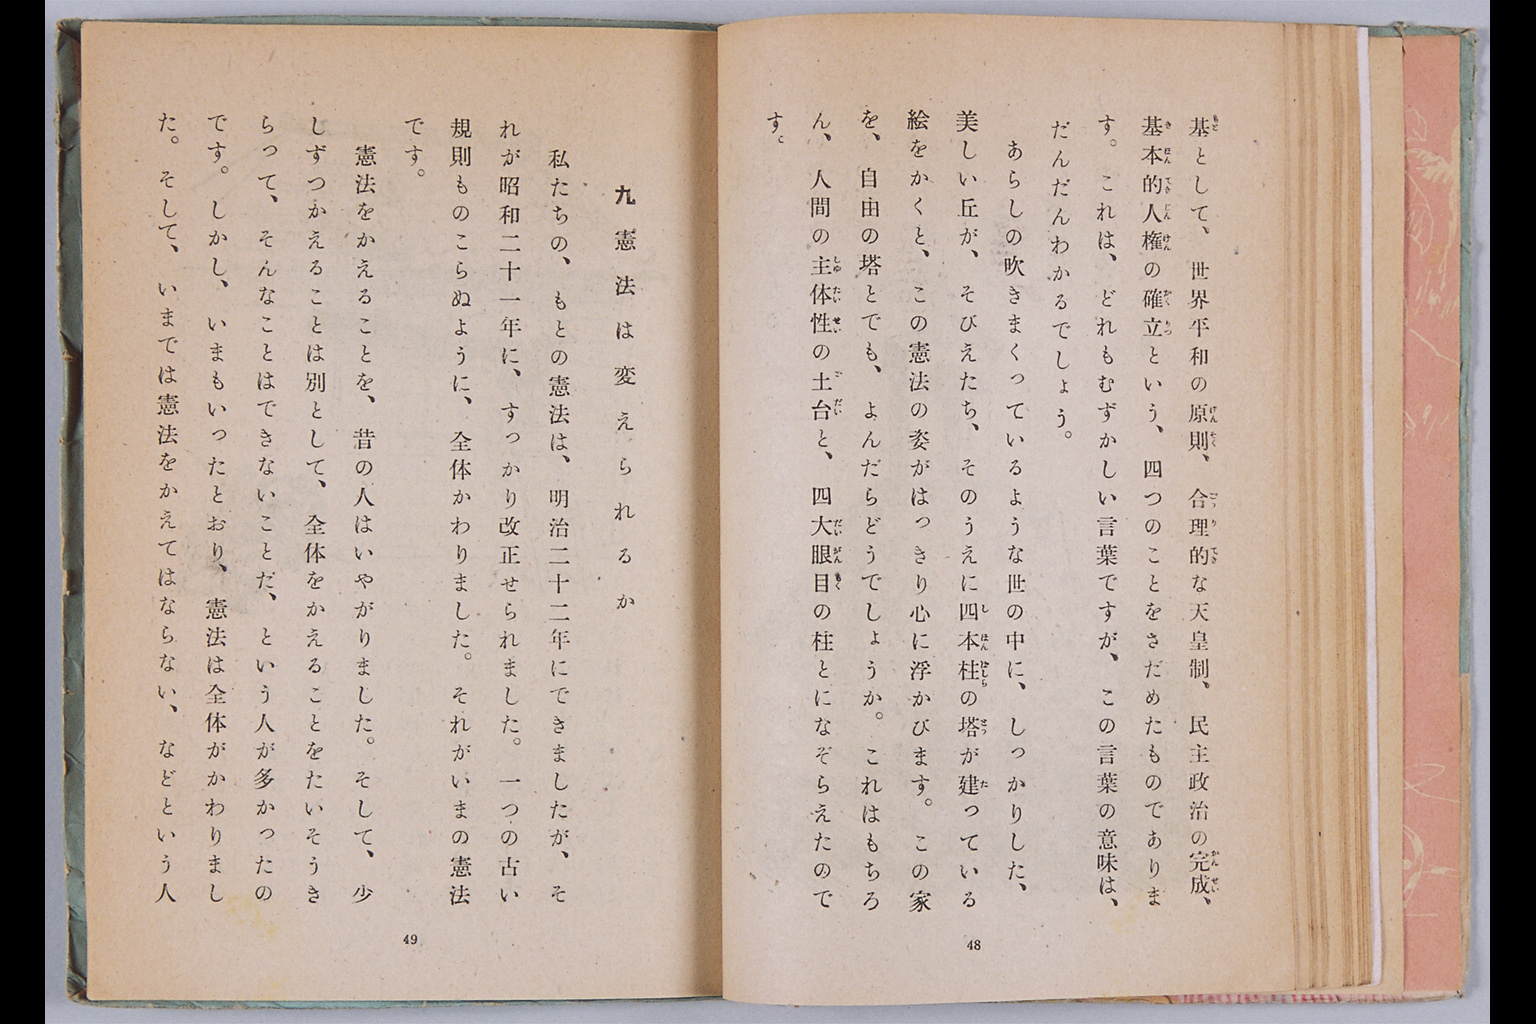 基として、世界平和の原則、合理的な天皇制、民主政治の完成、
基本的人権の確立という、四つのことをさだめたものでありま
す。これは、どれもむずかしい言葉ですが、この言葉の意味は、
だんだんわかるでしょう。
あらしの吹きまくっているような世の中に、しっかりした、
美しい丘が、そびえたち、そのうえに四本柱の塔が建っている
絵をかくと、この憲法の姿がはっきり心に浮かびます。この家
を、自由の塔とでも、よんだらどうでしょうか。これはもちろ
ん、人間の主体性の土台と、四大眼目の柱とになぞらえたので
す。
48
九 憲法は変えられるか
私たちの、もとの憲法は、明治二十二年にできましたが、そ
れが昭和二十一年に、すっかり改正せられました。一つの古い
規則ものこらぬように、全体かわりました。それがいまの憲法
です。
憲法をかえることを、昔の人はいやがりました。そして、少
しずつかえることは別として、全体をかえることをたいそうき
らって、そんなことはできないことだ、という人が多かったの
です。しかし、いまもいったとおり、憲法は全体がかわりまし
た。そして、いまでは憲法をかえてはならない、などという人
49